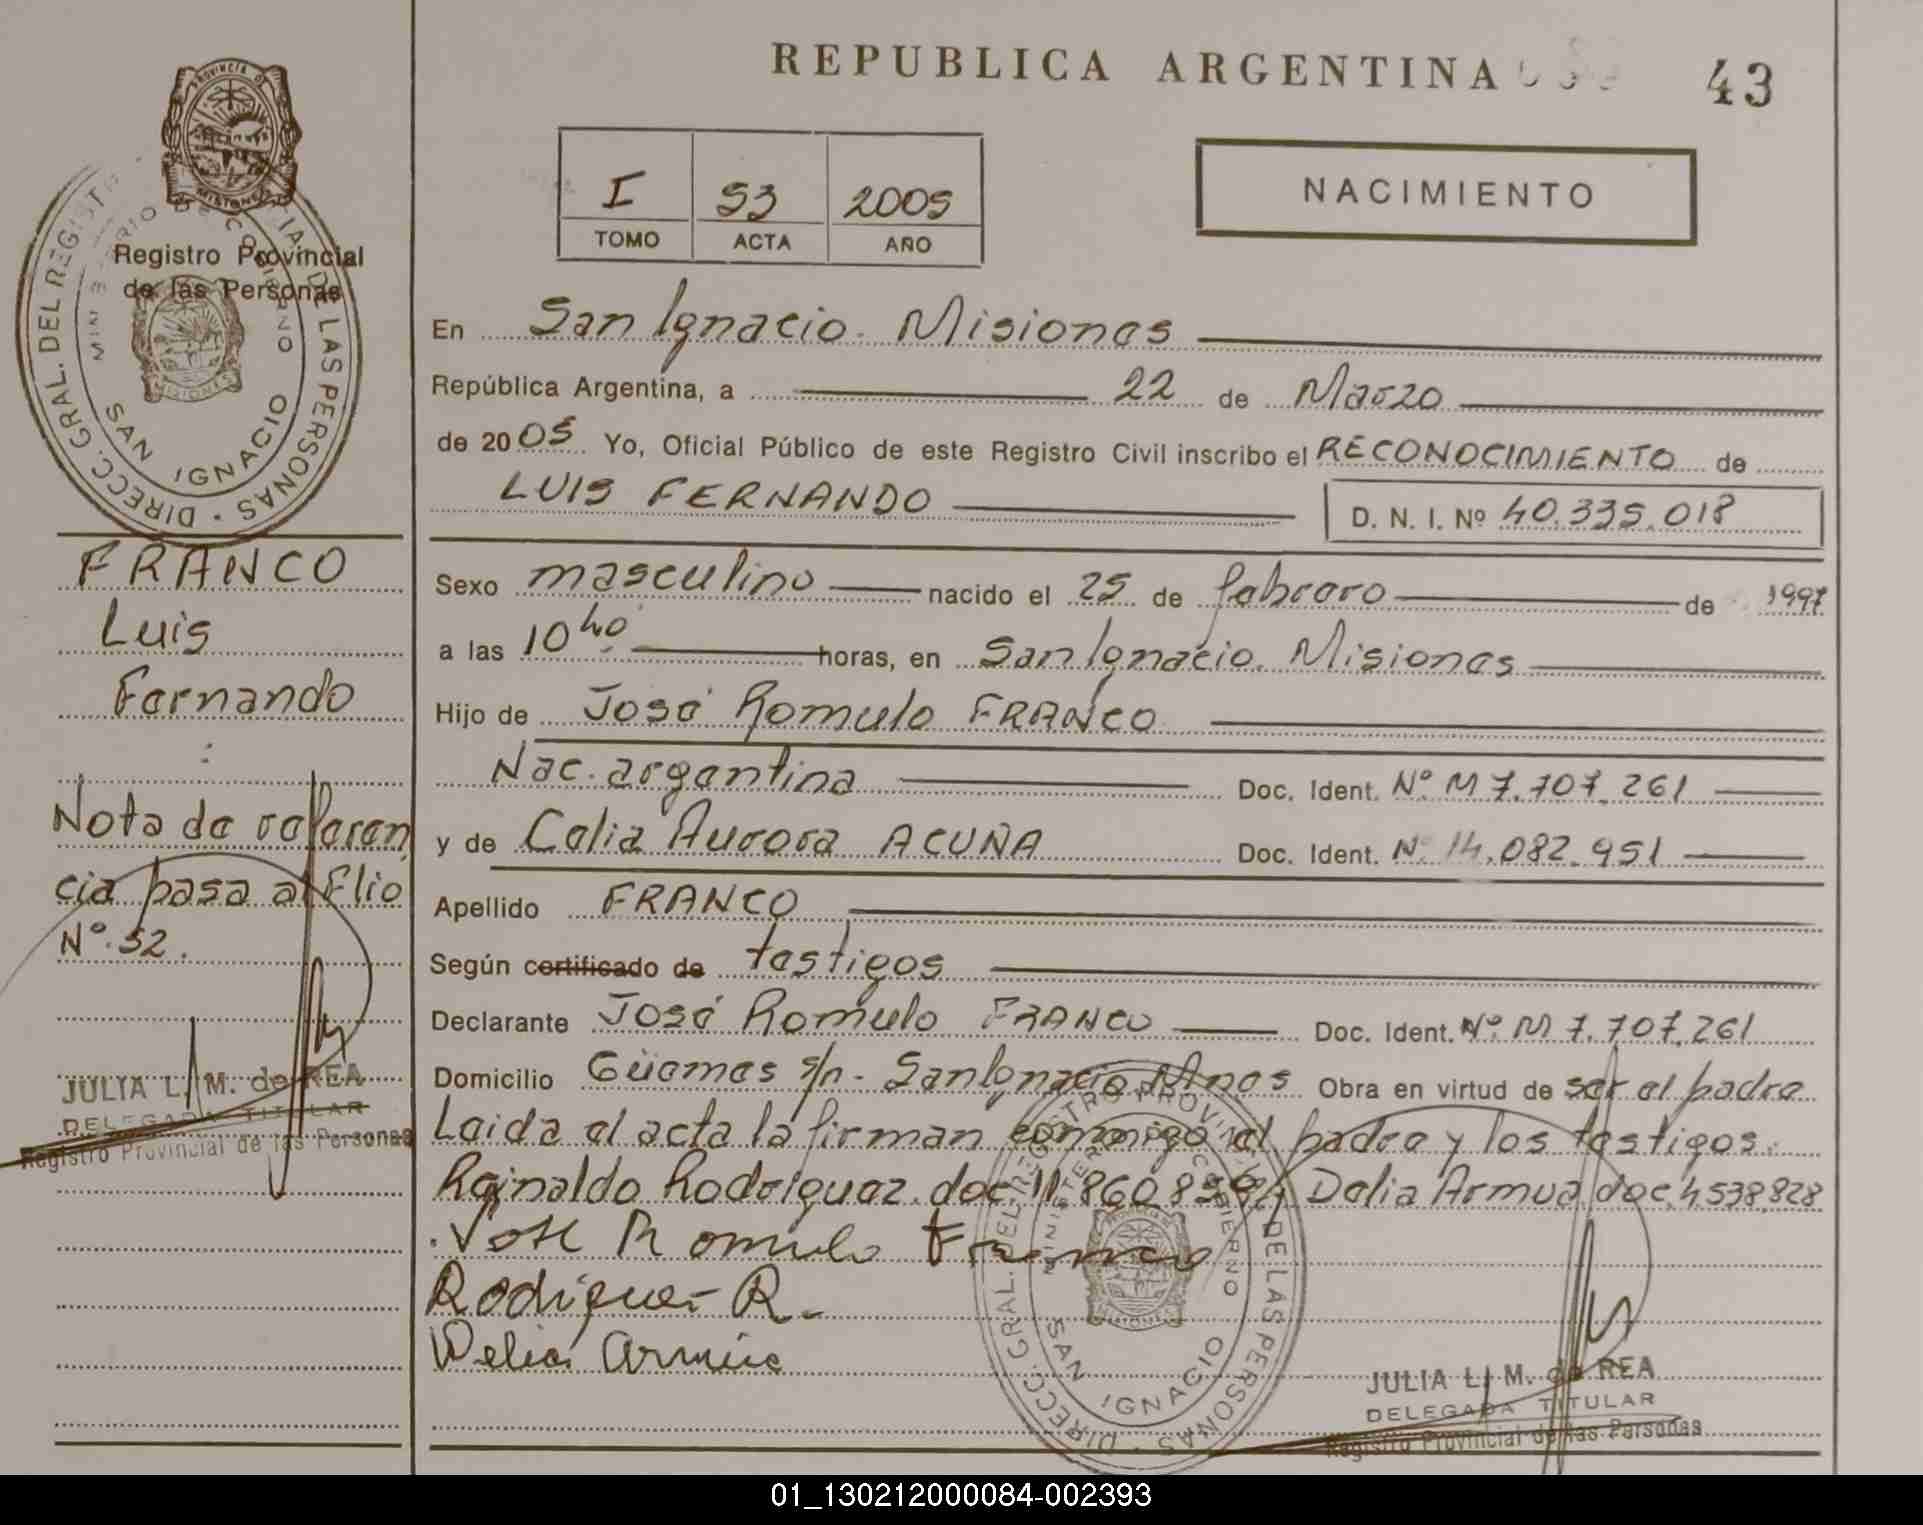 REPUBLICA ARGENTINA 43
I 53 2005
TOMO ACTA AÑO
NACIMIENTO
PROVINCIA DE MISIONES
Registro Provincial
de las Personas
DIRECC. GRAL. DEL REGISTRO DE LAS PERSONAS
MINISTERIO DE GOBIERNO
SAN IGNACIO
MISIONES
FRANCO
Luis
Fernando
Nota de referen
cia pasa al Flio
Nº 52.
JULIA L. M. de REA
DELEGADA TITULAR
Registro Provincial de las Personas
En San Ignacio. Misiones
República Argentina, a 22 de Marzo
de 2005 Yo, Oficial Público de este Registro Civil inscribo el RECONOCIMIENTO de
LUIS FERNANDO D. N. I. Nº 40.335.018
Sexo masculino nacido el 25 de febrero de 1997
a las 10 40 horas, en San Ignacio. Misiones
Hijo de José Romulo FRANCO
Nac. argentina Doc. Ident. Nº M 7.707.261
y de Celia Aurora ACUÑA Doc. Ident. Nº 14.082.951
Apellido FRANCO
Según certificado de testigos
Declarante José Romulo FRANCO Doc. Ident. Nº M 7.707.261
Domicilio Güemes s/n - San Ignacio Mnes Obra en virtud de ser el padre
Leida el acta la firman conmigo el padre y los testigos.
Reinaldo Rodriguez doc 11.860 Delia Armua doc. 4.538.828
José Romulo Franco
Rodriguez R.
Delia Armua
DIRECC. GRAL. DEL REGISTRO PROVINCIAL DE LAS PERSONAS
MINISTERIO DE GOBIERNO
SAN IGNACIO
MISIONES
JULIA L. M. de REA
DELEGADA TITULAR
Registro Provincial de las Personas
01_130212000084-002393